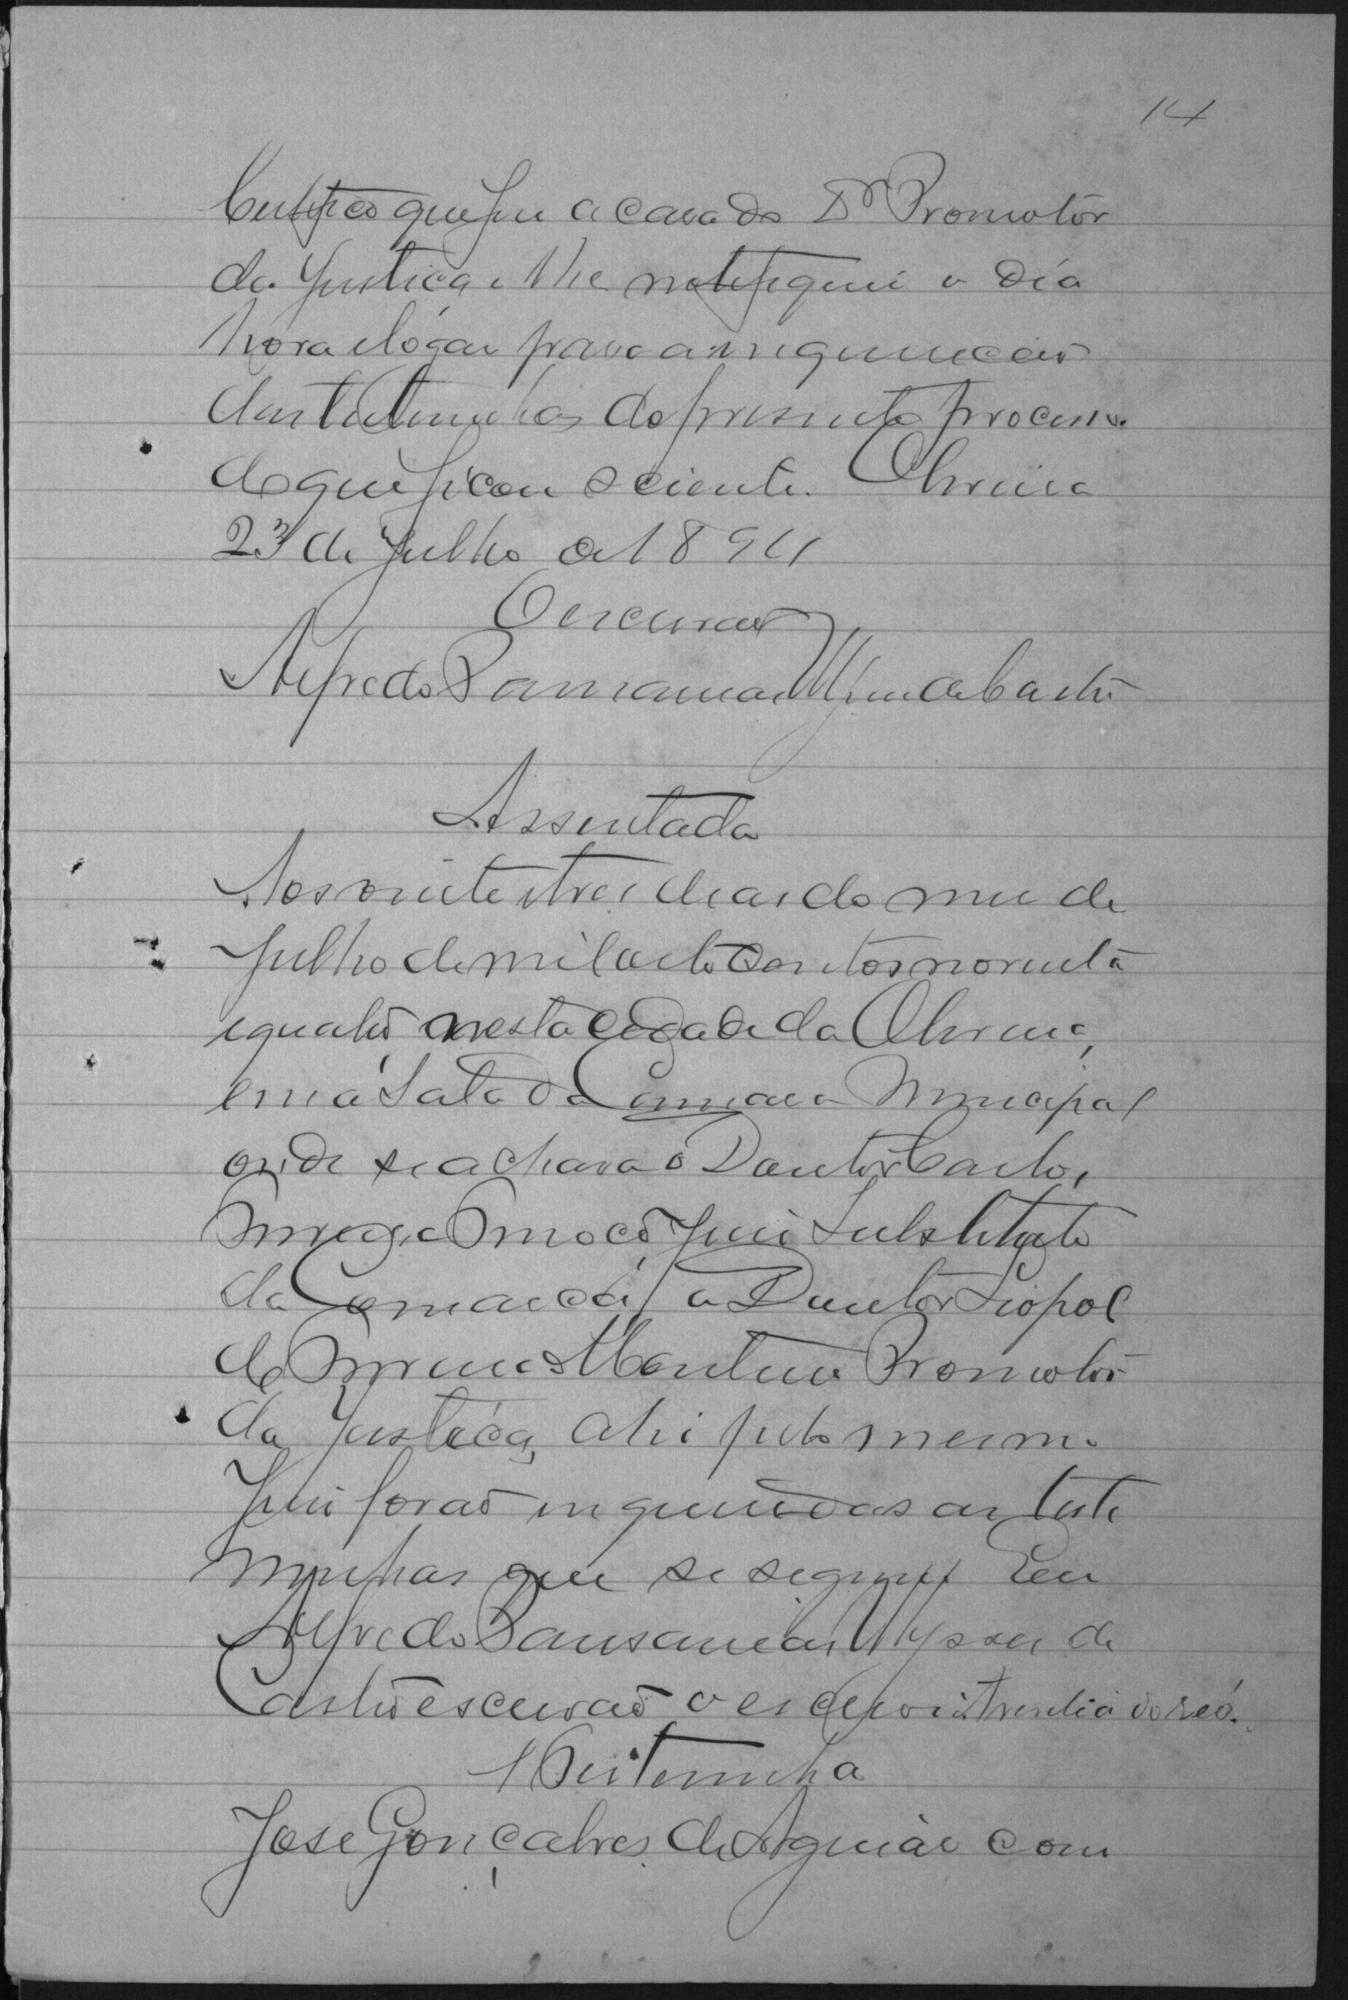 14
Certifico que fui a casa do Dr Promotor
da Justiça e lhe notifiquei o dia
hora e lógar para a inquirição
das testemunhas do presente processo
do que ficou sciente. Oliveira
23 de Julho de 1894
O escrivão
Alfredo Pansanias Ulysses de Castro
Assentada
Aos vinte e tres dias do mez de
Julho de mil oito centos noventa
e quatro nesta cidade da Oliveira,
em a Sala da Camara Municipal
onde se achava o Doutor Carlos
Juiz Substituto
da Comarca, o Doutor Liopol
do Monteiro Promotor
da Justiça, ahi pelo mesmo
Juiz forão inqueridas as teste
munhas que se seguem Eu
Alfredo Pansanias Ulysses de
Castro escrivão o escrevi. do reó.
1ª Testemunha
Jose Gonçalves de Aguiar com